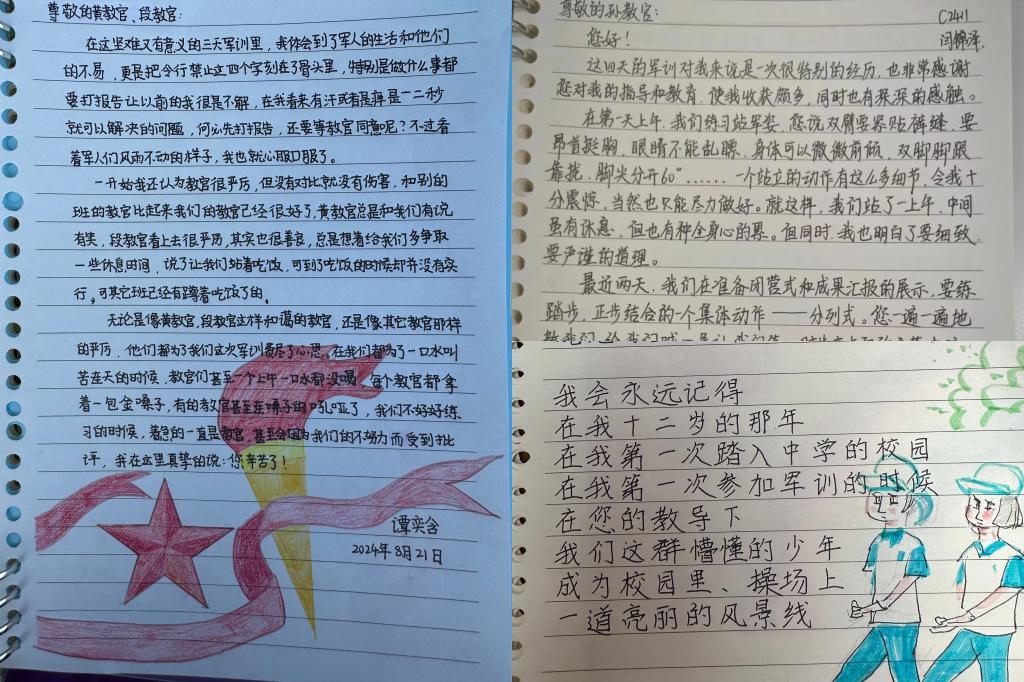 尊敬的黄教官、段教官:
在这坚难又有意义的三天军训里，我体会到了军人的生活和他们
的不易，更是把令行禁止这四个字刻在了骨头里，特别是做什么事都
要打报告让以前的我很是不解，在我看来有汗或者是痒是一二秒
就可以解决的问题，何必先打报告，还要等教官同意呢？不过看
着军人们风雨不动的样子，我也就心服口服了。
一开始我还认为教官很严厉，但没有对比就没有伤害，和别的
班的教官比起来我们的教官已经很好了，黄教官总是和我们有说
有笑，段教官看上去很严厉，其实也很善良，总是想着给我们多争取
一些休息时间，说了让我们站着吃饭，可到了吃饭的时候却并没有实
行，可其它班已经有蹲着吃饭了的。
无论是像黄教官，段教官这样和蔼的教官，还是像其它教官那样
的严厉，他们都为了我们这次军训费尽了心思。在我们都为了一口水叫
苦连天的时候，教官们甚至一个上午一口水都没喝，每个教官都拿
着一包金嗓子，有的教官甚至连嗓子的吼哑了，我们不好好练
习的时候，着急的一直是教官，甚至会因为我们的不努力而受到批
评，我在这里真挚的说：您辛苦了！
谭奕含
2024年8月21日
尊敬的孙教官：
C2411
您好！
闫锦泽
这四天的军训对我来说是一次很特别的经历，也非常感谢
您对我的指导和教育，使我收获颇多，同时也有深深的感触。
在第一天上午，我们练习站军姿，您说双臂要紧贴裤缝，要
昂首挺胸，眼睛不能乱瞟，身体可以微微前倾，双脚脚跟
靠拢，脚尖分开60°……一个站立的动作有这么多细节，令我十
分震惊，当然也只能尽力做好。就这样，我们站了一上午，中间
虽有休息，但也有种全身心的累。但同时，我也明白了要细致，
要严谨的道理。
最近两天，我们在准备闭营式和成果汇报的展示，要练
踏步，正步结合的一个集体动作——分列式。您一遍一遍地
我会永远记得
在我十二岁的那年
在我第一次踏入中学的校园
在我第一次参加军训的时候
在您的教导下
我们这群懵懂的少年
成为校园里、操场上
一道亮丽的风景线